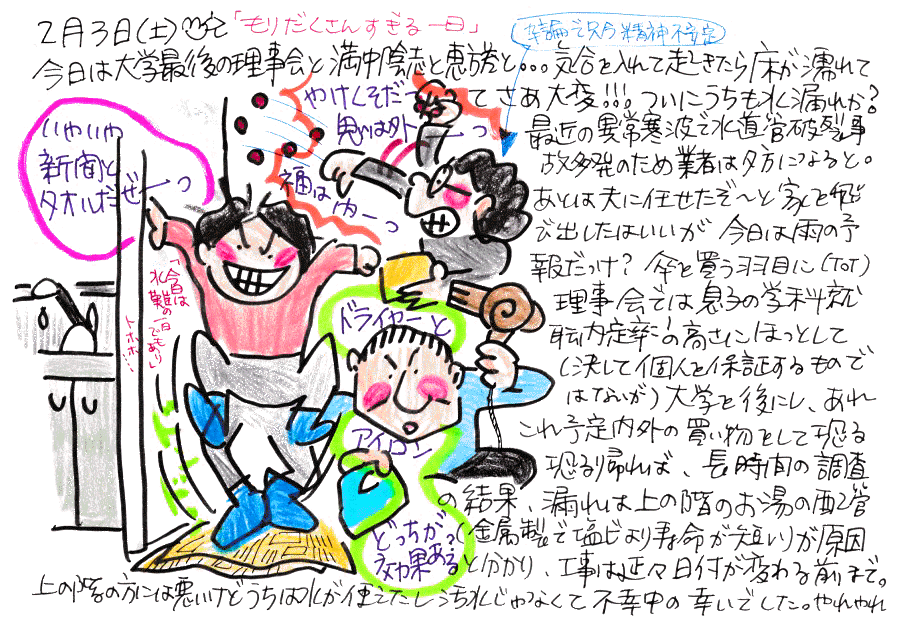 2月3日(土)「もりだくさんすぎる一日」
卒論で只今精神不安定
今日は大学最後の理事会と満中陰志と恵方巻と...気合を入れて起きたら床が濡れて
てさあ大変!!!ついにうちも水漏れか?
最近の異常寒波で水道管破裂事
故多発のため業者は夕方になると。
あとは夫に任せたぞ〜と家を飛
び出したはいいが今日は雨の予
報だっけ?傘を買う羽目に(ToT)
理事会では息子の学科就
職内定率の高さにほっとして
(決して個人を保証するもので
はないが)大学を後にし、あれ
これ予定内外の買い物をして恐る
恐る帰れば、長時間の調査
の結果、漏れは上の階のお湯の配管
(金属製で塩ビより寿命が短い)が原因
と分かり、工事は延々日付が変わる前まで。
上の階の方には悪いけどうちは水が使えたし汚れじゃなくて不幸中の幸いでした。やれやれ
いやいや
新聞と
タオルだぜーっ
やけくそだ
鬼は外ーっ
福は内ーっ
「今日は
水難の一日であり」
トホホ
ドライヤーと
アイロン
どっちが
効果ある